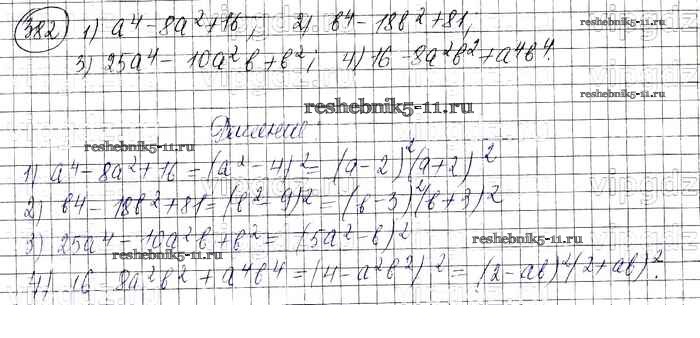 382) 1) a⁴ - 8a² + 16; 2) b⁴ - 18b² + 81;
3) 25a⁴ - 10a²b + b²; 4) 16 - 8a²b² + a⁴b⁴.
reshebnik5-11.ru
reshebnik5-11.ru
reshebnik5-11.ru
Решение
reshebnik5-11.ru
1) a⁴ - 8a² + 16 = (a² - 4)² = (a - 2)²(a + 2)²
2) b⁴ - 18b² + 81 = (b² - 9)² = (b - 3)²(b + 3)²
3) 25a⁴ - 10a²b + b² = (5a² - b)²
reshebnik5-11.ru
reshebnik5-11.ru
4) 16 - 8a²b² + a⁴b⁴ = (4 - a²b²)² = (2 - ab)²(2 + ab)².
reshebnik5-11.ru